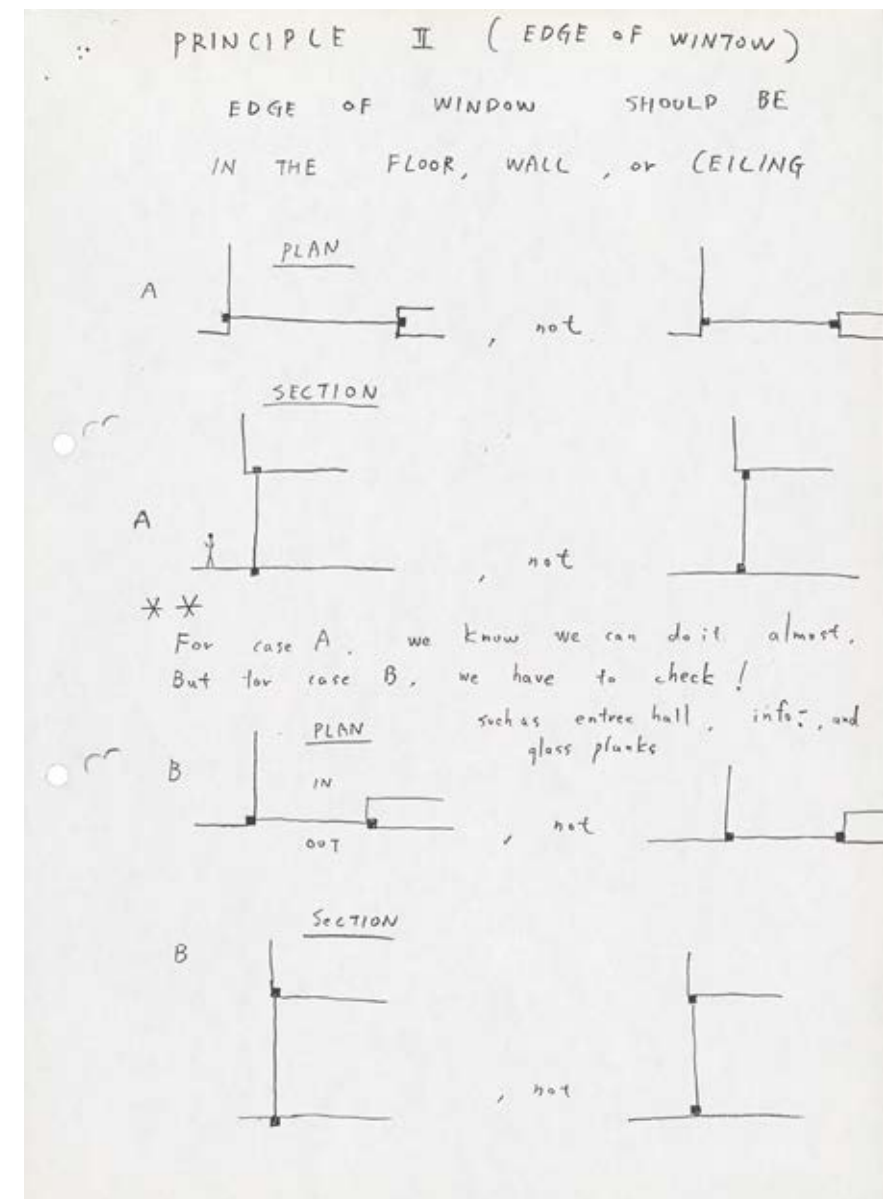 PRINCIPLE II (EDGE OF WINTOW)
EDGE OF WINDOW SHOULD BE
IN THE FLOOR, WALL, or CEILING
PLAN
A
, not
SECTION
A
, not
**
For case A. we know we can do it almost.
But for case B. we have to check!
such as entree hall. info-, and
glass planks
PLAN
B
IN
, not
OUT
SECTION
B
, not